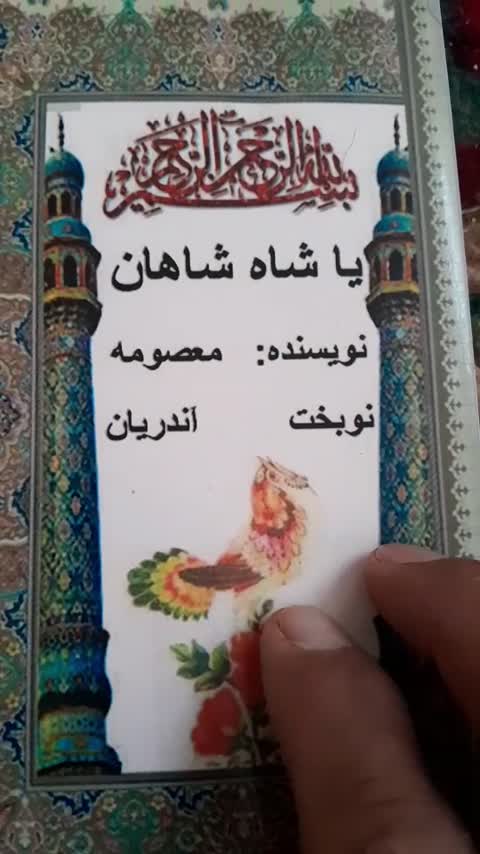 بسم الله الرحمن الرحیم
یا شاه شاهان
نویسنده: معصومه
نوبخت آندریان